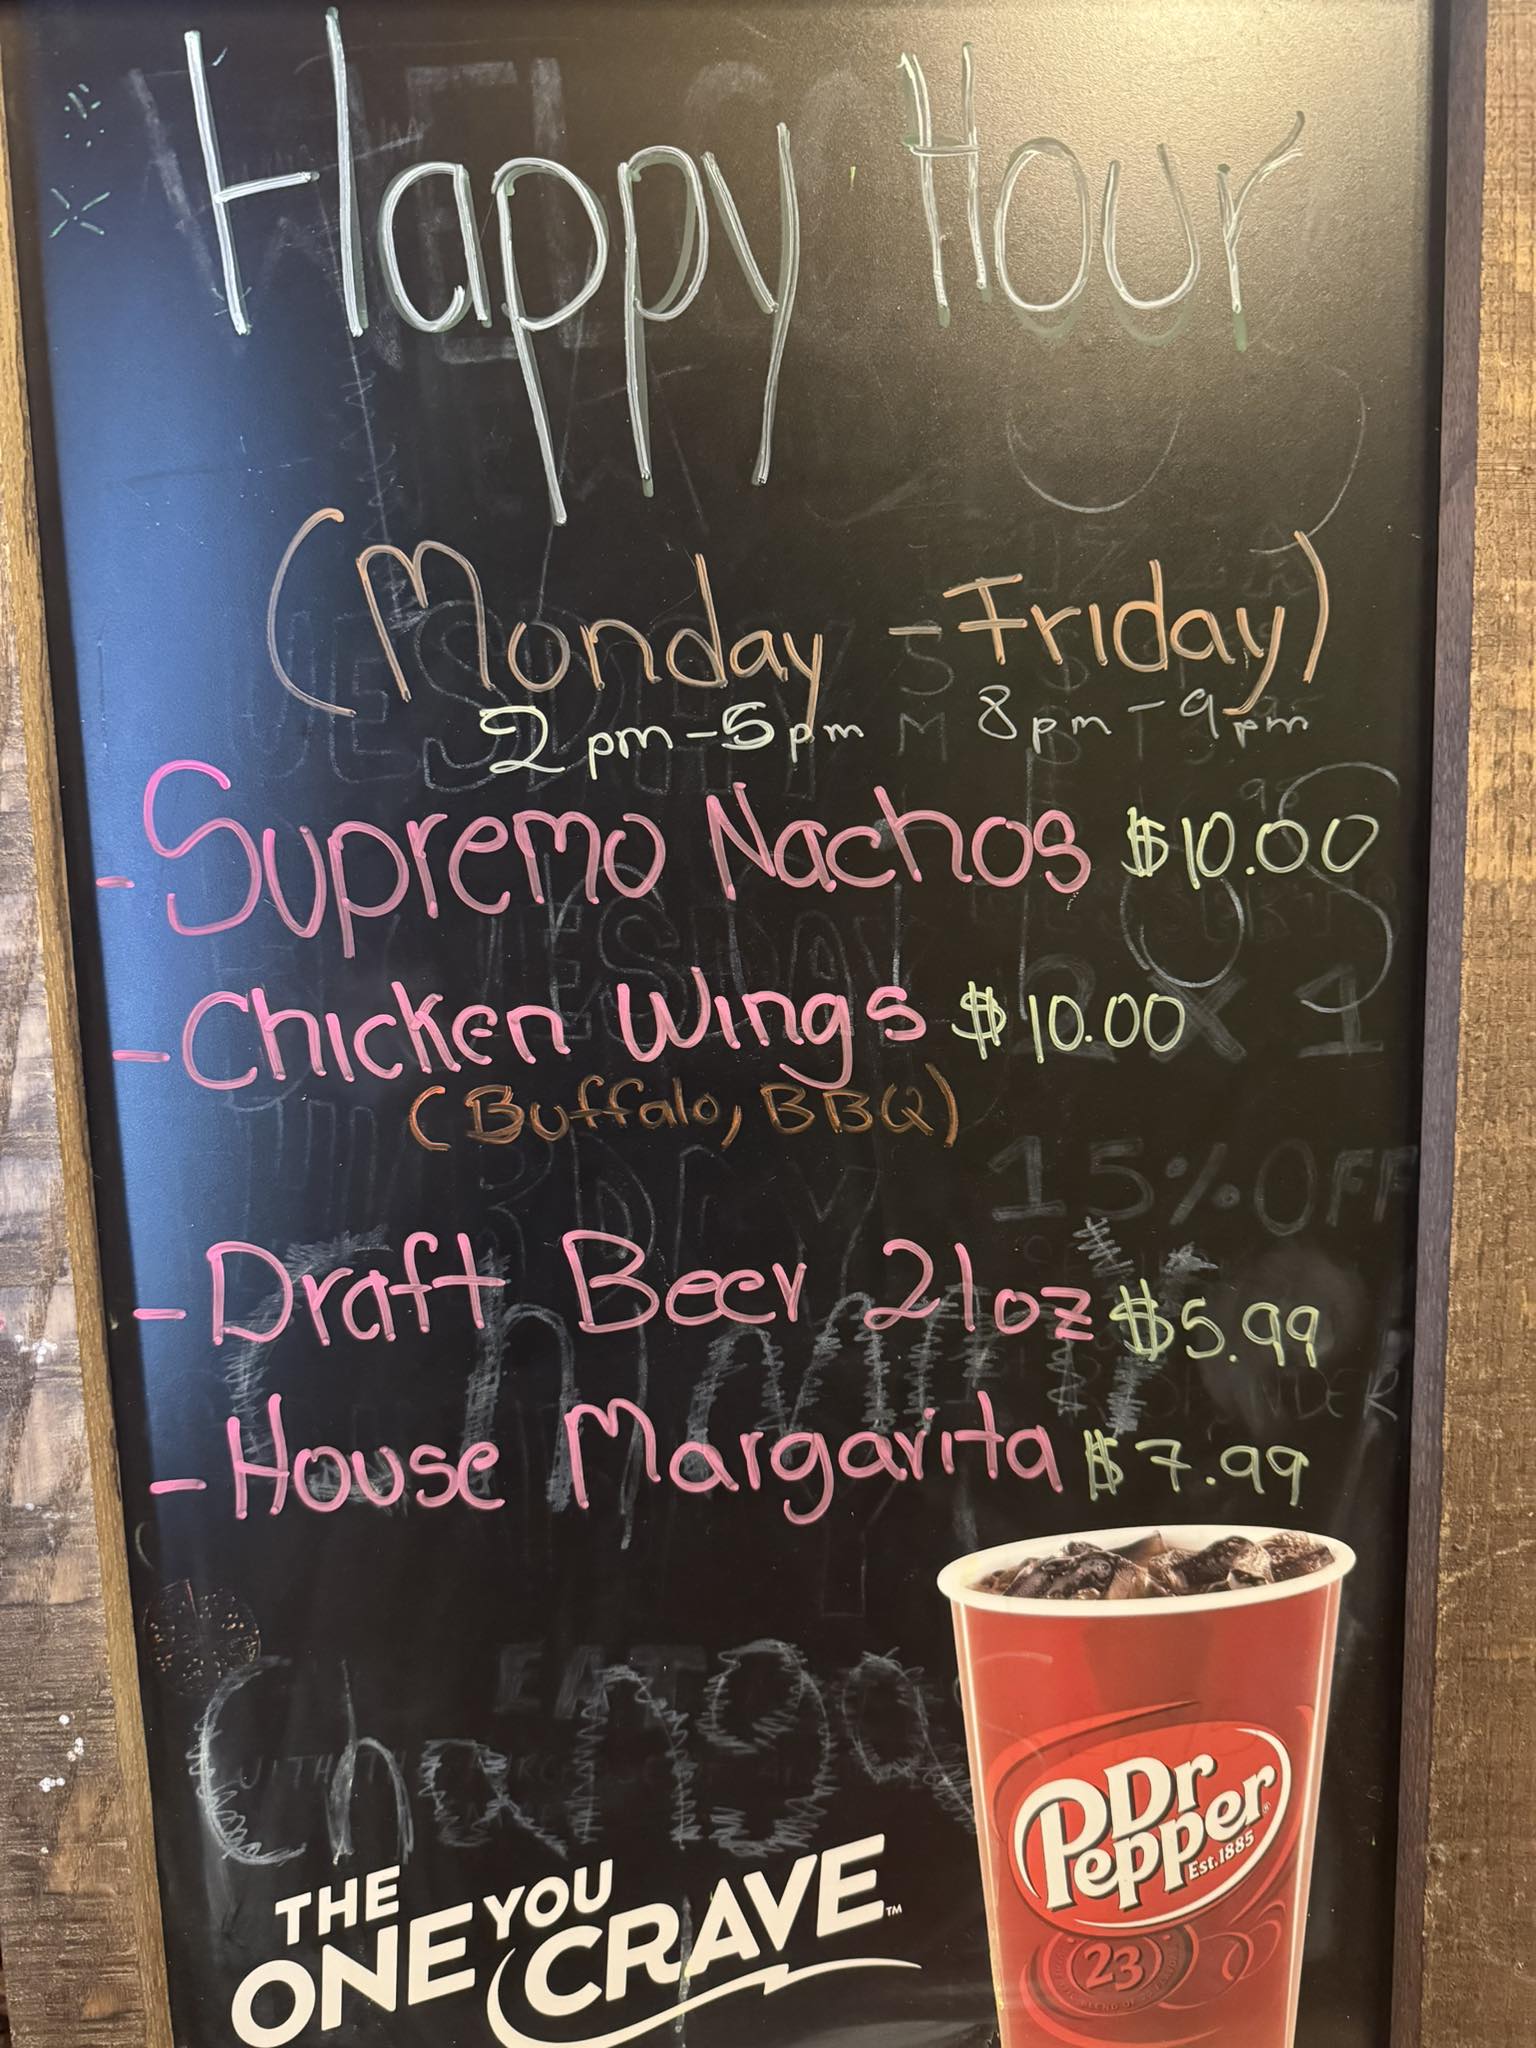 Happy Hour
(Monday - Friday)
2pm-5pm 8pm-9pm
- Supremo Nachos $10.00
- Chicken Wings $10.00
(Buffalo, BBQ)
15% OFF
- Draft Beer 21oz $5.99
- House Margarita $7.99
EAT
THE
ONE YOU
CRAVE™
Dr
Pepper®
Est.1885
23